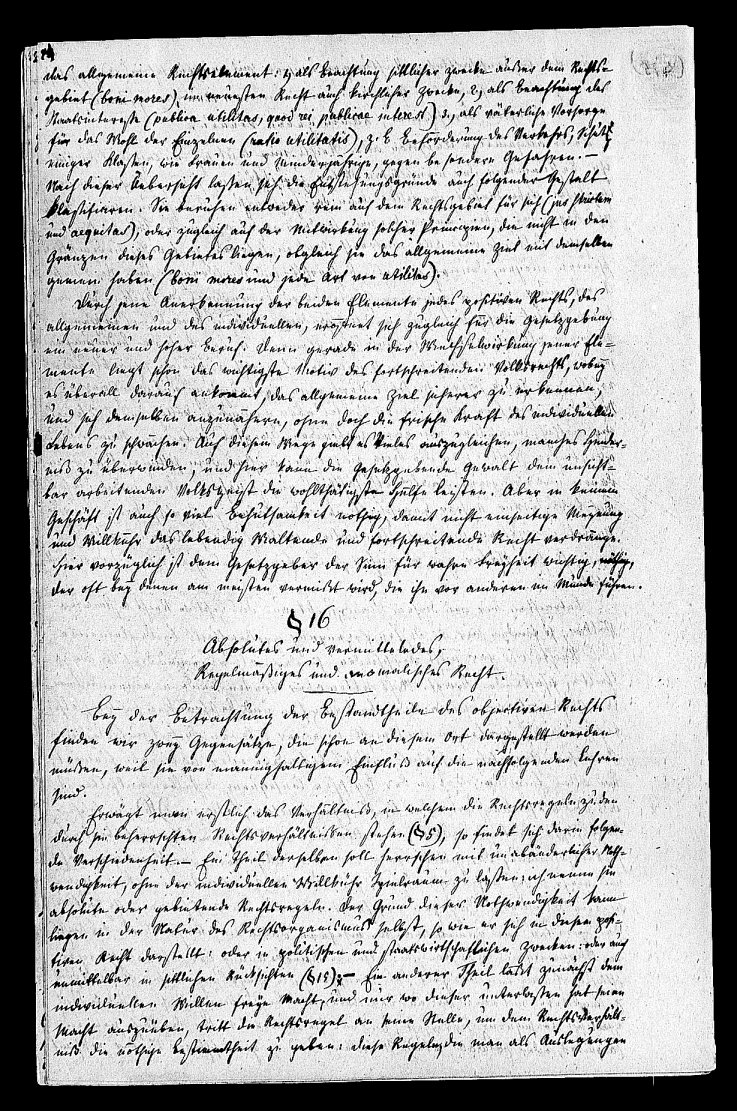 das allgemeine Rechtselement: 1, als Beachtung sittlicher Zwecke außer dem Rechts-
gebiet (boni mores), im neuesten Recht auch kirchlicher Zwecke, 2, als Beachtung des
Staatsinteresse (publica utilitas, quod rei publicae interest) 3, als väterliche Vorsorge
für das Wohl der Einzelnen (ratio utilitatis), z. B. Beförderung des Verkehrs, Schutz
einiger Klassen, wie Frauen und Minderjährige, gegen besondere Gefahren. —
Nach dieser Uebersicht lassen sich die Entstehungsgründe auch folgender Gestalt
klassifiziren. Sie beruhen entweder rein auf dem Rechtsgebiet für sich (jus strictum
und aequitas), oder zugleich auf der Mitwirkung solcher Principien, die nicht in den
Gränzen dieses Gebietes liegen, obgleich sie das allgemeine Ziel mit demselben
gemein haben (boni mores und jede Art von utilitas).
Durch jene Anerkennung der beiden Elemente jedes positiven Rechts, des
allgemeinen und des individuellen, eröffnet sich zugleich für die Gesetzgebung
ein neuer und hoher Beruf. Denn gerade in der Wechselwirkung jener Ele-
mente liegt schon das wichtigste Motiv des fortschreitenden Volksrechts, wobey
es überall darauf ankommt, das allgemeine Ziel sicherer zu erkennen,
und sich demselben anzunähern, ohne doch die frische Kraft des individuellen
Lebens zu schwächen. Auf diesem Wege giebt es Vieles auszugleichen, manches Hinder-
niß zu überwinden, und hier kann die gesetzgebende Gewalt dem unsicht-
bar arbeitenden Volksgeist die wohlthätigste Hülfe leisten. Aber in keinem
Geschäft ist auch so viel Behutsamkeit nöthig, damit nicht einseitige Meynung
und Willkühr das lebendig Waltende und fortschreitende Recht verdränge.
Hier vorzüglich ist dem Gesetzgeber der Sinn für wahre Freyheit wichtig,
der oft bey denen am meisten vermißt wird, die ihn vor anderen im Munde führen.
§ 16
Absolutes und vermittelndes,
Regelmäßiges und anomalisches Recht.
Bey der Betrachtung der Bestandtheile des objectiven Rechts
finden wir zwey Gegensätze, die schon an diesem Ort dargestellt werden
müssen, weil sie von mannigfaltigem Einfluß auf die nachfolgenden Lehren
sind.
Erwägt man erstlich das Verhältniß, in welchem die Rechtsregeln zu den
durch sie beherrschten Rechtsverhältnissen stehen (§ 5), so findet sich darin folgen-
de Verschiedenheit. — Ein Theil derselben soll herrschen mit unabänderlicher Noth-
wendigkeit, ohne der individuellen Willkühr Spielraum zu lassen: ich nenne sie
absolute oder gebietende Rechtsregeln. Der Grund dieser Nothwendigkeit kann
liegen in der Natur des Rechtsorganismus selbst, so wie er sich in diesem posi-
tiven Recht darstellt: oder in politischen und staatswirtschaftlichen Zwecken: oder auch
unmittelbar in sittlichen Rücksichten (§ 15). — Ein anderer Theil läßt zunächst dem
individuellen Willen freye Macht, und nur wo dieser unterlassen hat seine
Macht auszuüben, tritt die Rechtsregel an seine Stelle, um dem Rechtsverhält-
niß die nöthige Bestimmtheit zu geben: diese Regeln, die man als Auslegungen